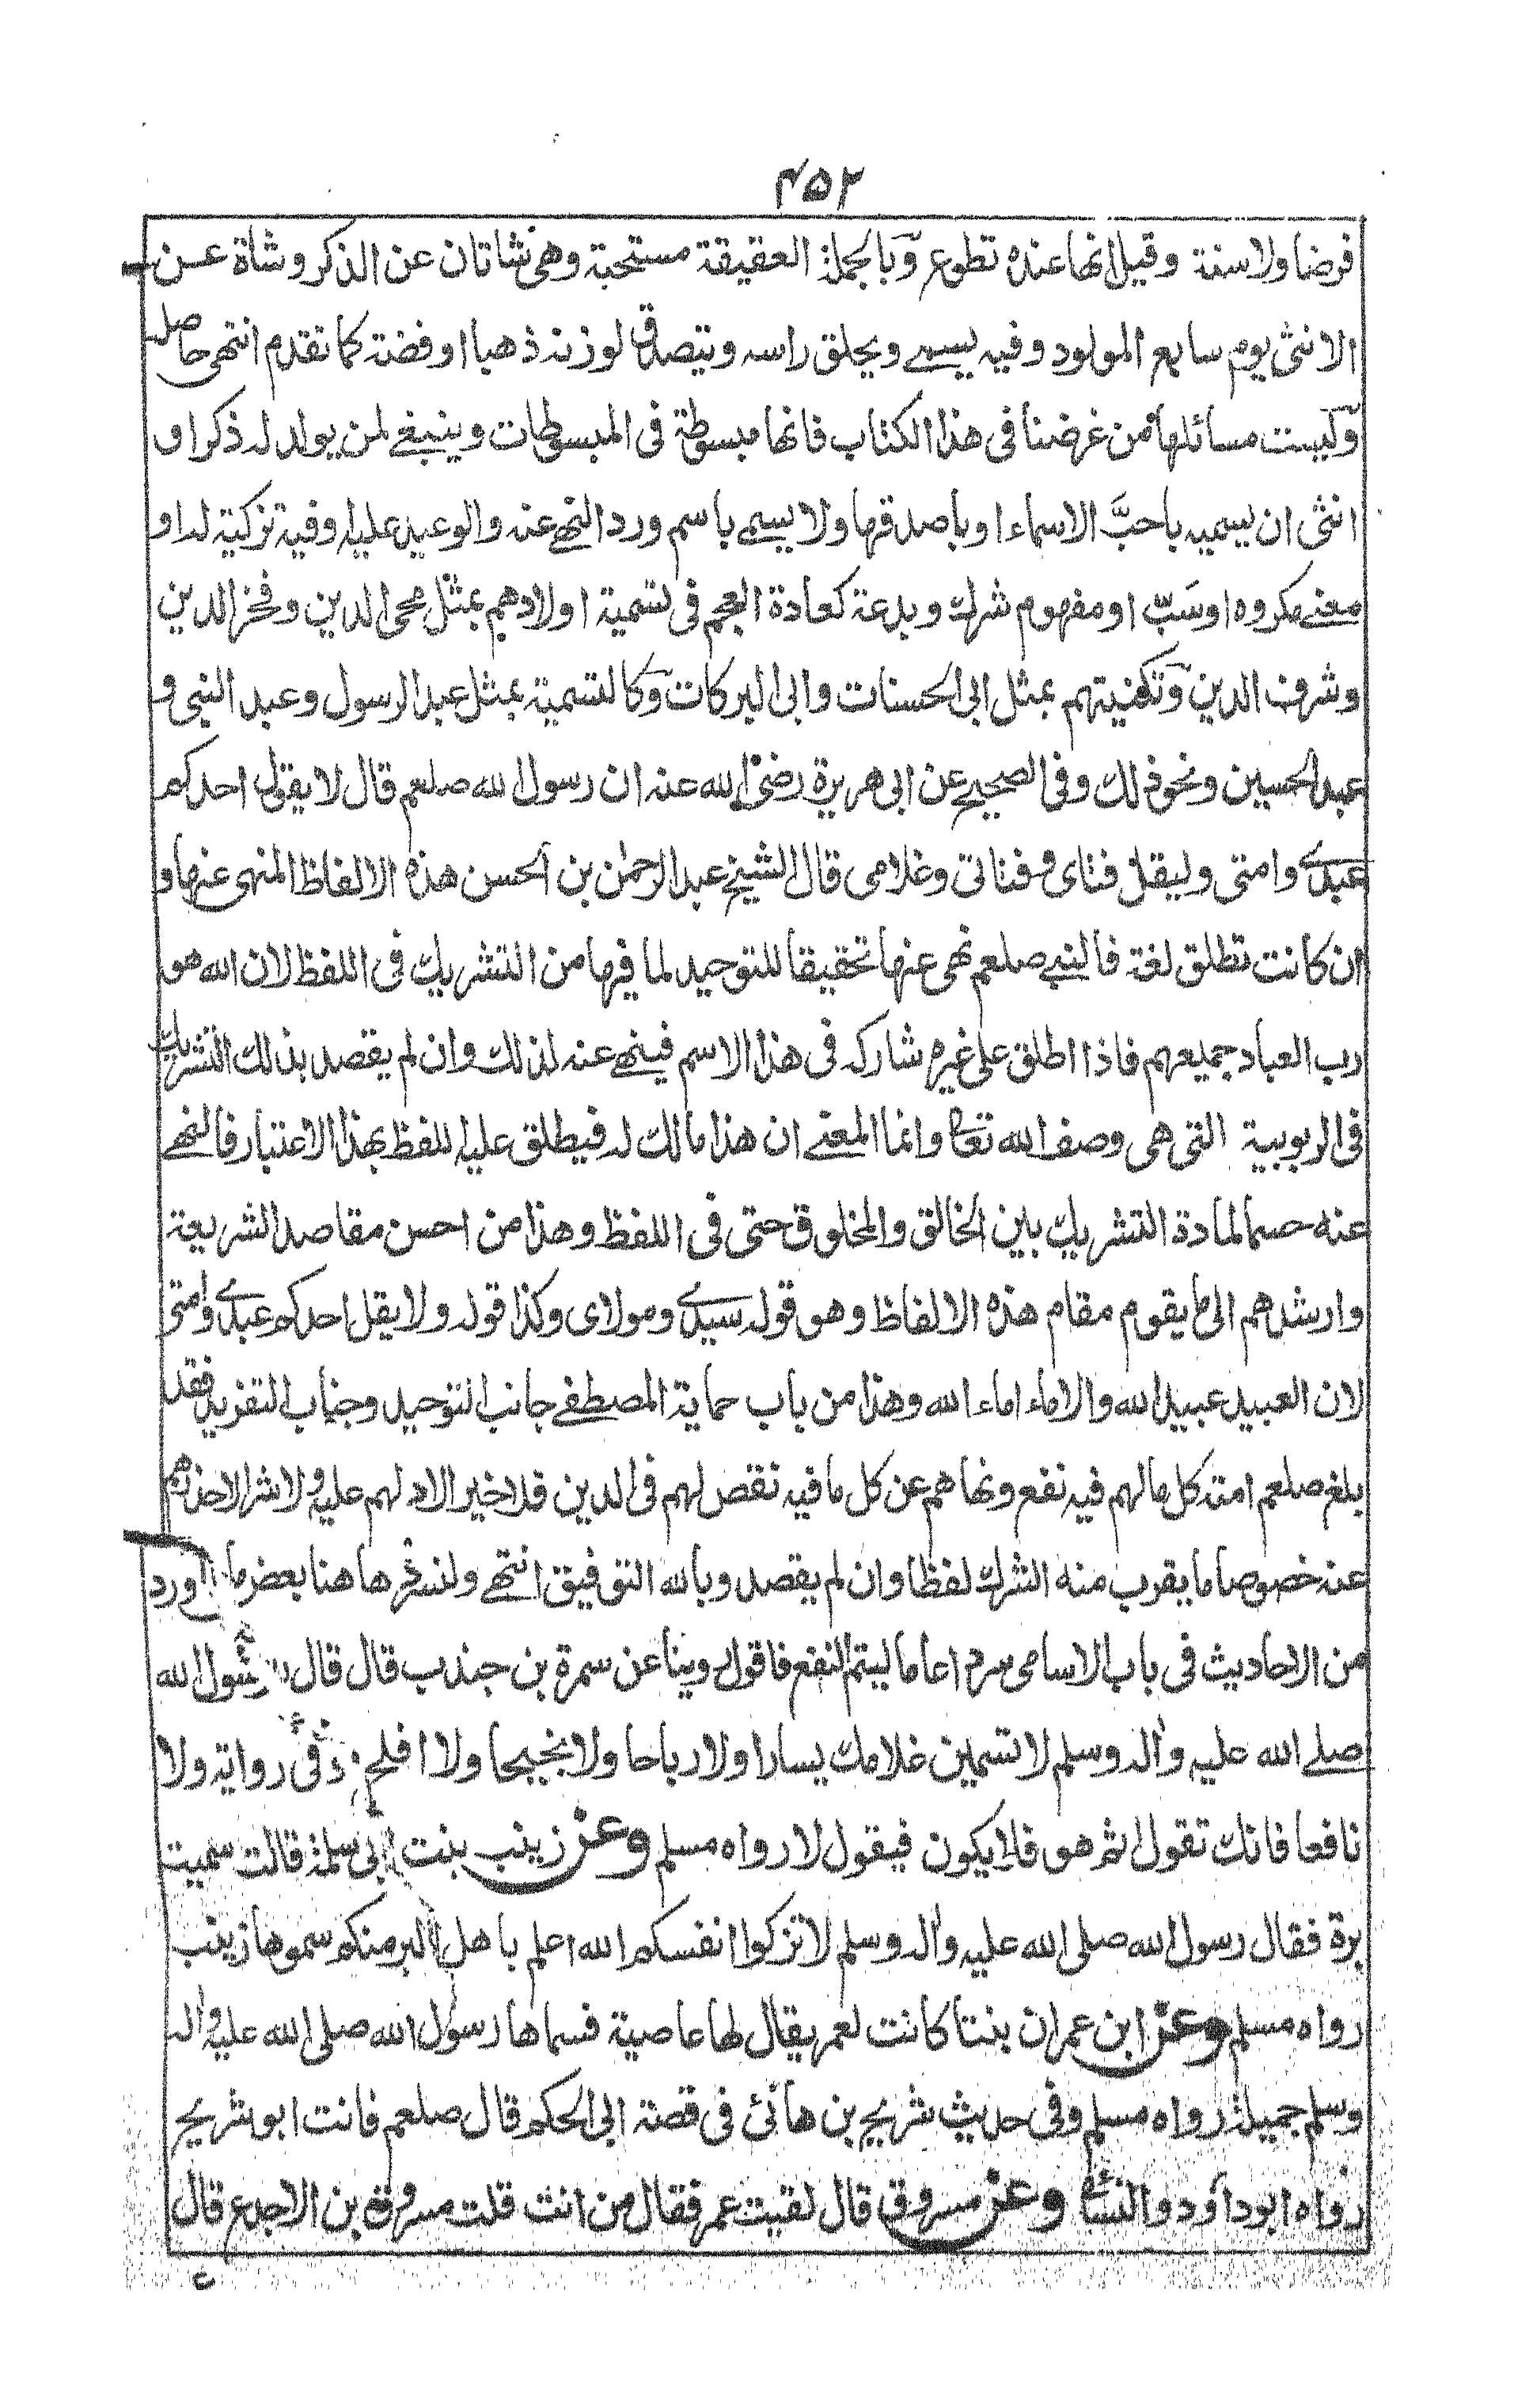 ۴۵۲
فرضا ولا سنة وقيل انها عنده تطوع وبالجملة العقيقة مستحبة وهى شاتان عن الذكر وشاة عن
الانثى يوم سابع المولود وفيه يسمے ويحلق راسه ويتصدق لوزنه ذهبا او فضة كما تقدم انتهى حاصله
وليست مسائلها من غرضنا فى هذا الكتاب فانها مبسوطة فى المبسوطات وينبغے لمن يولد له ذكر او
انثى ان يسميه باحبَّ الاسماء او باصدقها ولا يسمے باسم ورد النهے عنه والوعيد عليه وفيه تزكية له او
معنے مكروه او سَبّ او مفهوم شرك وبدعة كعادة العجم فى تسمية اولادهم بمثل محى الدين وفخر الدين
وشرف الدين وتكنيتهم بمثل ابى الحسنات وابى البركات وكالتسمية بمثل عبد الرسول وعبد النبى و
عبد الحسين ونحو ذلك وفى الصحيح عن ابى هريرة رضى الله عنه ان رسول الله صلعم قال لا يقول احدكم
عبدے وامتى وليقل فتاى وفتاتى وغلامى قال الشيخ عبد الرحمٰن بن الحسن هذه الالفاظ المنهى عنها و
ان كانت تطلق لغة فالنبے صلعم نهى عنها تحقيقا للتوحيد لما فيها من التشريك فى اللفظ لان الله هو
رب العباد جميعهم فاذا اطلق على غيره شاركه فى هذا الاسم فينهے عنه لذلك وان لم يقصد بذلك التشريك
فى الربوبية التى هى وصف الله تعا وانما المعنے ان هذا مالك له فيطلق عليه اللفظ بهذا الاعتبار فالنهے
عنه حسما لمادة التشريك بين الخالق والمخلوق حتى فى اللفظ وهذا من احسن مقاصد الشريعة
وارشدهم الى ما يقوم مقام هذه الالفاظ وهو قوله سيدے ومولاى وكذا قوله ولا يقل احدكم عبدے وامتى
لان العبيد عبيد الله والاماء اماء الله وهذا من باب حماية المصطفے جانب التوحيد وجناب التفريد فقد
بلغ صلعم امته كل ما لهم فيه نفع ونهاهم عن كل ما فيه نقص لهم فى الدين فلا خير الا دلهم عليه ولا شر الا حذرهم
عنه خصوصا ما يقرب منه الشرك لفظا وان لم يقصد وبالله التوفيق انتهے ولنذكر هاهنا بعض ما ورد
من الاحاديث فى باب الاسامى سردا عاما ليتم النفع فاقول روينا عن سمرة بن جندب قال قال رسول الله
صلے الله عليه واٰله وسلم لا تسمين غلامك يسارا ولا رباحا ولا نجيحا ولا افلح وفى رواية ولا
نافعا فانك تقول اثم هو فلا يكون فيقول لا رواه مسلم وعن زينب بنت ابى سلمة قالت سميت
برة فقال رسول الله صلى الله عليه واٰله وسلم لا تزكوا انفسكم الله اعلم باهل البر منكم سموها زينب
رواه مسلم وعن ابن عمر ان بنتا كانت لعمر يقال لها عاصية فسماها رسول الله صلى الله عليه واٰله
وسلم جميلة رواه مسلم وفى حديث شريح بن هانئ فى قصة ابى الحكم قال صلعم فانت ابو شريح
رواه ابو داود والنسائے وعن مسروق قال لقيت عمر فقال من انت قلت مسروق بن الاجدع قال